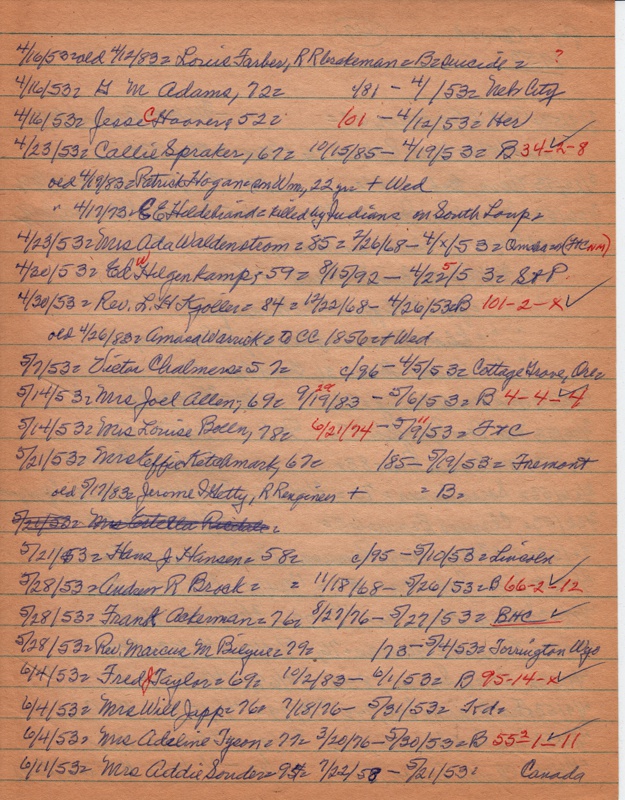 4/16/53= old 4/12/83= Louis Farber, RR brakeman = B= suicide = ?
4/16/53= G M Adams, 72= /81 - 4/1/53= Neb City
4/16/53= Jesse C Hoover, 52= /01 - 4/12/53= Her
4/23/53= Callie Spraker, 67= 10/15/85 - 4/19/53= B 34-2-8
old 4/19/83= Patrick Hogan= son Wm, 22 yrs + Wed
" 4/17/73= E E Haldebrand= killed by Indians on South Loup=
4/23/53= Mrs Ada Waldenstrom= 85= 2/26/68 - 4/x/53= Omaha on (F+C NM)
4/30/53= Ed W Hilgenkamp, 59= 8/15/92 - 4/25/53= S+P.
4/30/53= Rev. L. H Kjoller= 84= 12/22/68 - 4/26/53=B 101-2-x
old 4/26/83= Amasa Warrick= to CC 1856= + Wed
5/7/53= Victor Chalmers= 57= c/96 - 4/5/53= Cottage Grove, Ore
5/14/53= Mrs Joel Allen, 69= 9/19/83 - 5/6/53= B 4-4-4
5/14/53= Mrs Louise Bolln, 78= 6/21/74 - 5/9/53= F+C
5/21/53= Mrs Effie Ketchmark, 67= /85 - 5/19/53= Fremont
old 5/17/83= Jerome Hetty, RR engineer + = B=
5/21/53= Mrs Estella =
5/21/53= Hans J Hansen= 58= c/95 - 5/10/53= Lincoln
5/28/53= Andrew R Brock= = 11/18/68 - 5/26/53= B 66-2-12
5/28/53= Frank Ackerman= 76= 8/27/76 - 5/27/53= BHC
5/28/53= Rev. Marcus M Bilyeu= 79= /73 - 5/4/53= Torrington Wyo
6/4/53= Fred J Taylor= 69= 10/2/83 - 6/1/53= B 95-14-x
6/4/53= Mrs Will Japp= 76= 7/18/76 - 5/31/53= Kd=
6/4/53= Mrs Adaline Tyson= 77= 3/20/76 - 5/30/53= B 55²-1-11
6/11/53= Mrs Addie Souder= 95= 7/22/58 - 5/21/53= Canada